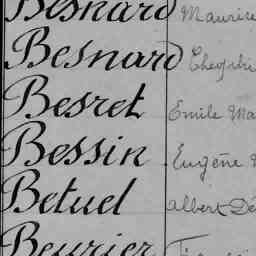 Besnard Maurice
Besnard
Besret Emile Ma
Bessin Eugène
Betuel Albert Dé
Beurier